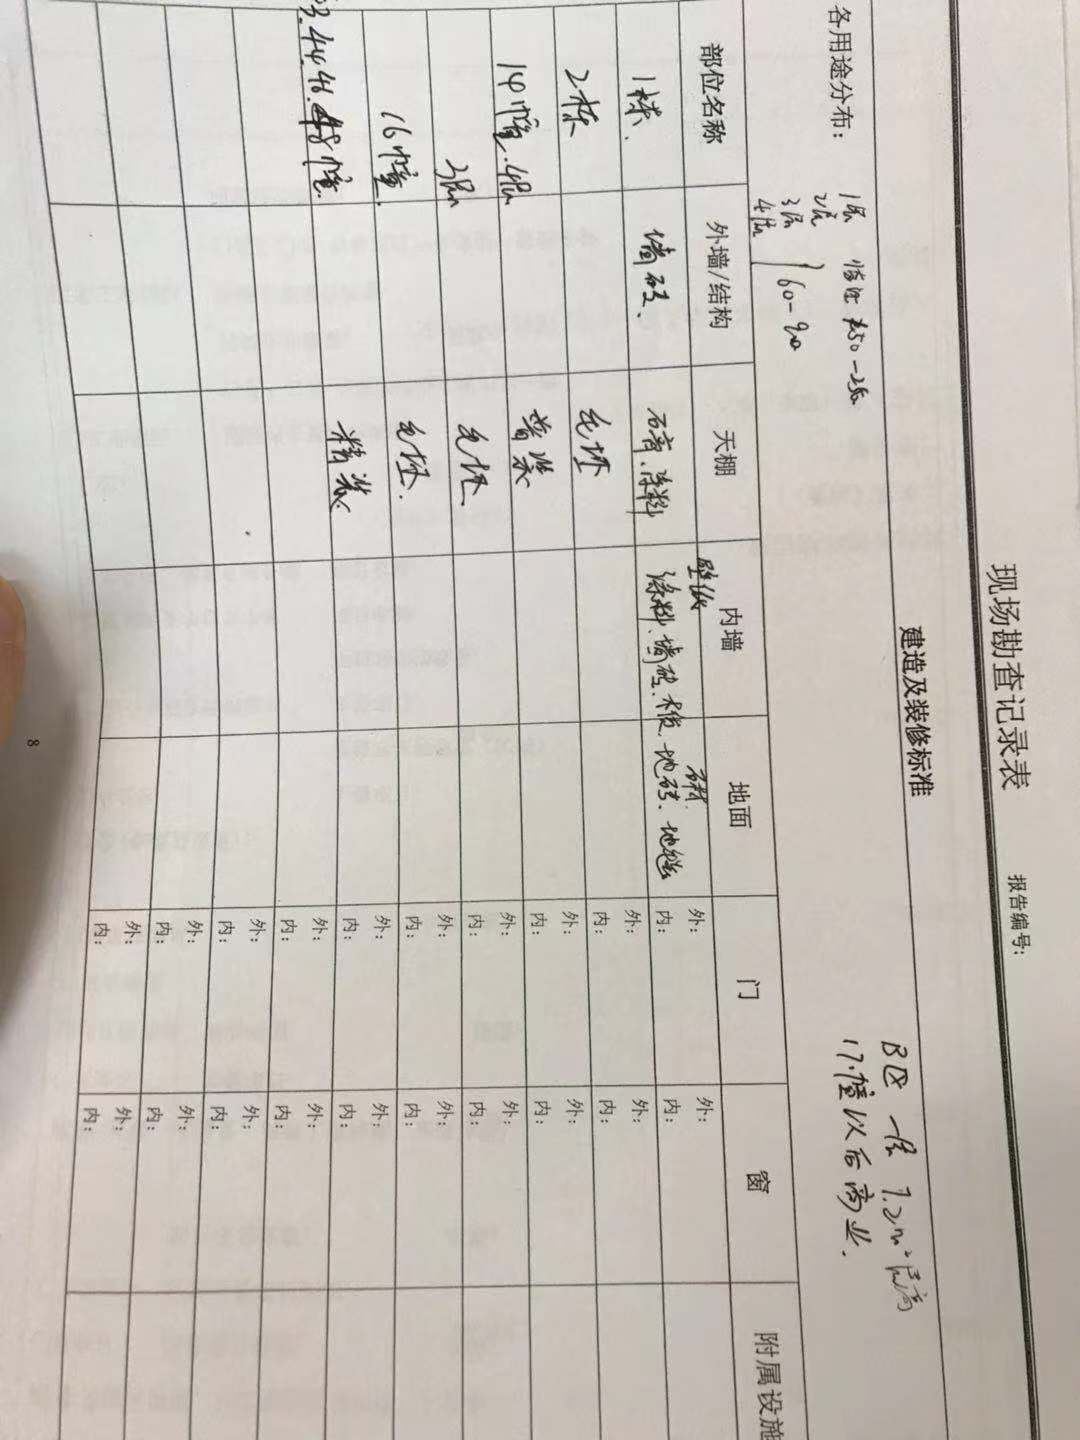 现场勘查记录表
报告编号:
建造及装修标准
各用途分布:
1层
2层
3层
4层
60-90
B区 一层 7.2m
17幢以后商业.
部位名称 外墙/结构 天棚 内墙 地面 门 窗 附属设施
壁纸 石材
1栋. 墙砖. 石膏.涂料 涂料.墙砖.木板 地砖. 地毯 外: 内: 外: 内:
2栋 毛坯 外: 内: 外: 内:
14幢. 4层 普装 外: 内: 外: 内:
3层 毛坯 外: 内: 外: 内:
16幢. 毛坯. 外: 内: 外: 内:
3.44.46.48幢. 精装 外: 内: 外: 内:
外: 内: 外: 内:
外: 内: 外: 内:
外: 内: 外: 内:
外: 内: 外: 内:
8